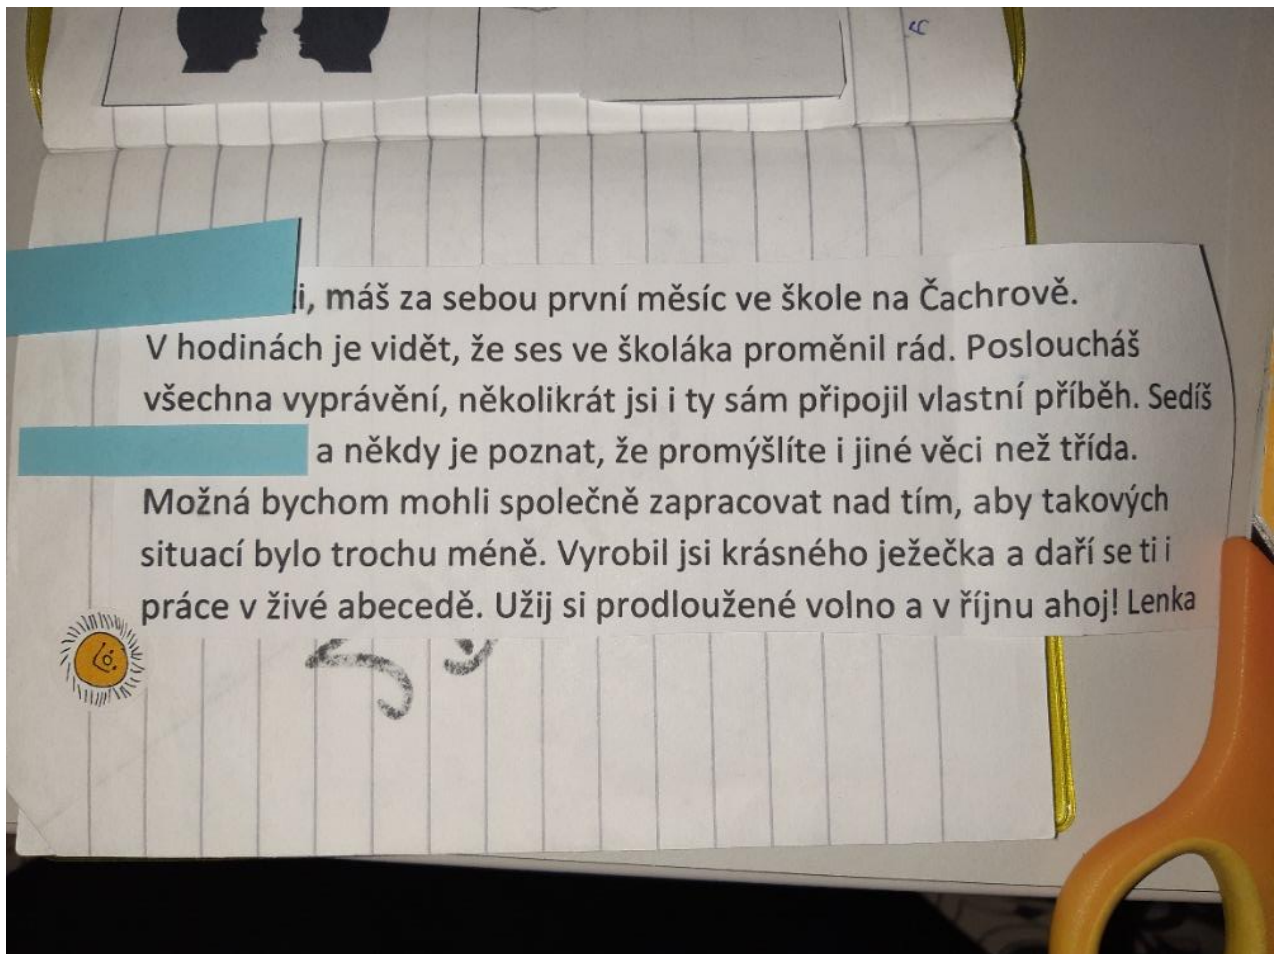 i, máš za sebou první měsíc ve škole na Čachrově.
V hodinách je vidět, že ses ve školáka proměnil rád. Posloucháš
všechna vyprávění, několikrát jsi i ty sám připojil vlastní příběh. Sedíš
a někdy je poznat, že promýšlíte i jiné věci než třída.
Možná bychom mohli společně zapracovat nad tím, aby takových
situací bylo trochu méně. Vyrobil jsi krásného ježečka a daří se ti i
práce v živé abecedě. Užij si prodloužené volno a v říjnu ahoj! Lenka